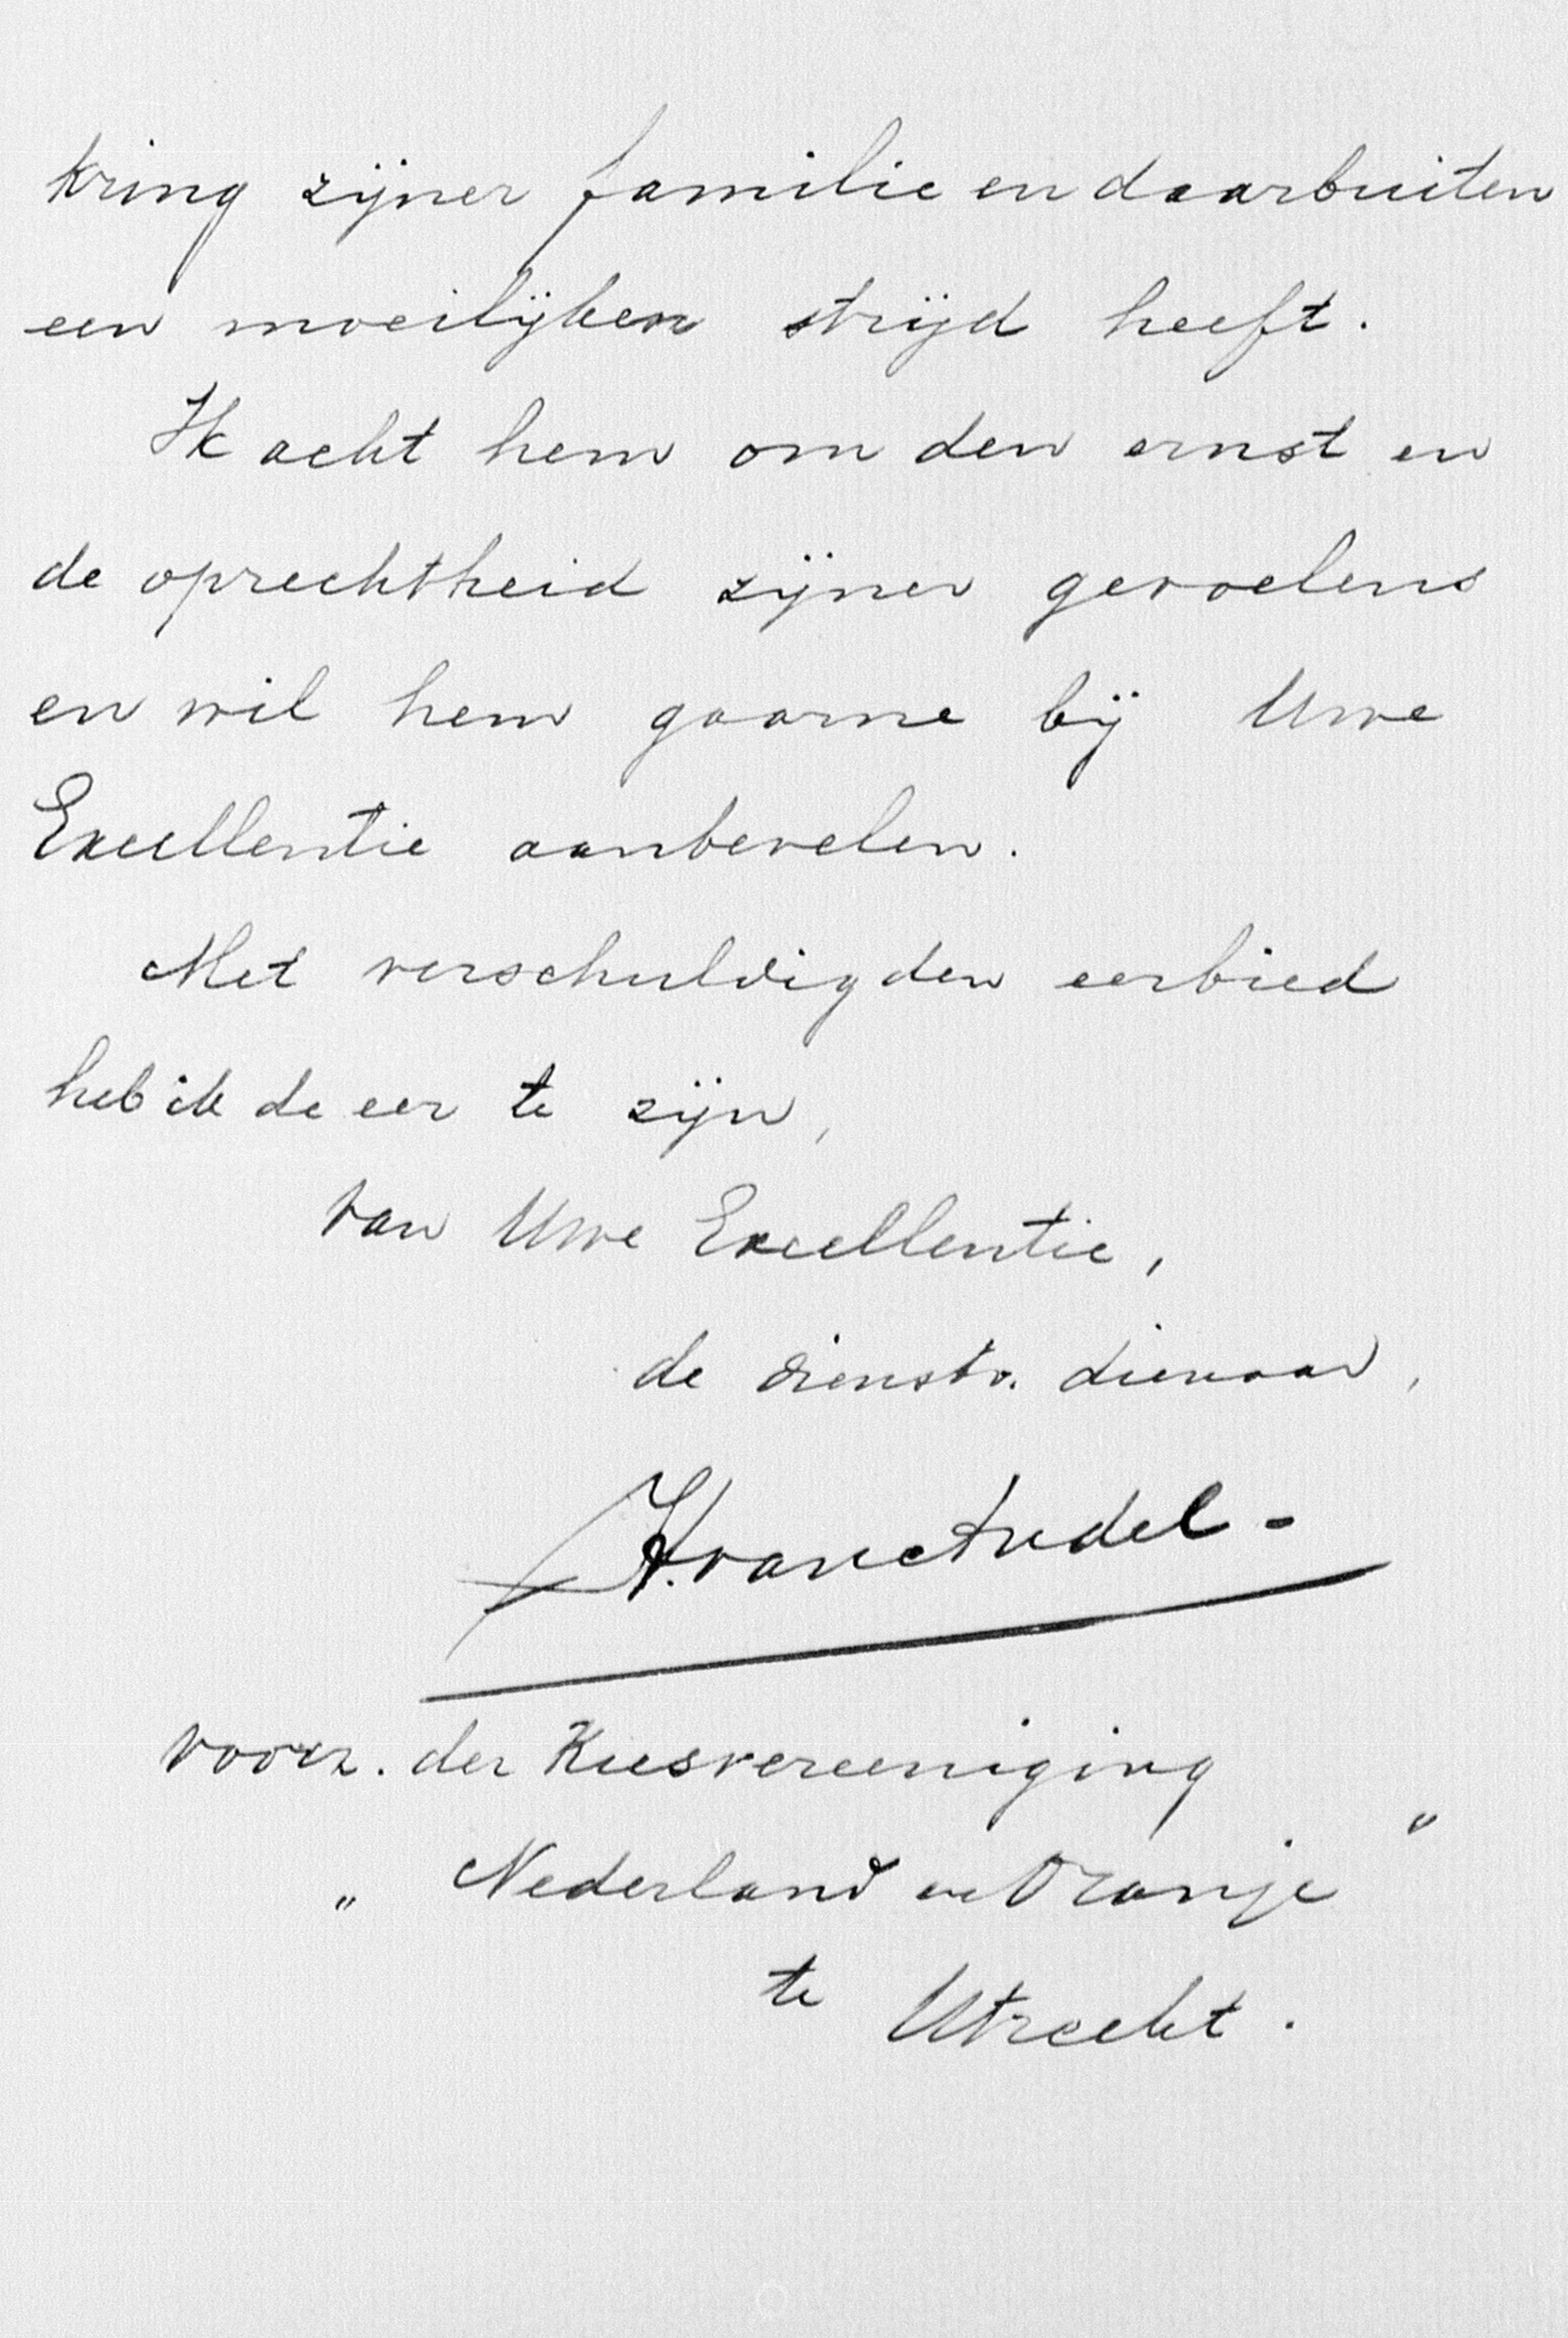 kring zijner familie en daarbuiten
een moeilijken strijd heeft.
Ik acht hem om den ernst en
de oprechtheid zijner gevoelens
en wil hem gaarne bij Uwe
Excellentie aanbevelen.
Met verschuldigden eerbied
heb ik de eer te zijn,
van Uwe Excellentie,
de dienstv. dienaar,
H. van Andel-
voorz. der Kiesvereeniging
„ Nederland en Oranje "
te Utrecht.